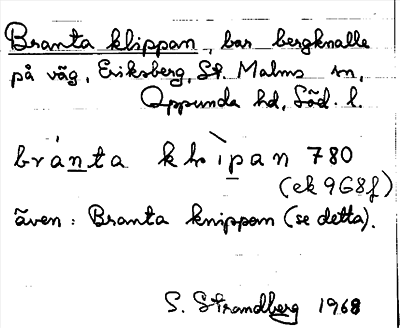 Branta klippan, bar bergknalle
på väg, Eriksberg, St. Malms sn,
Oppunda hd, Söd. l.
bránta klìpan 780
(ek 9G8f)
även: Branta knippan (se detta).
S. Strandberg 1968